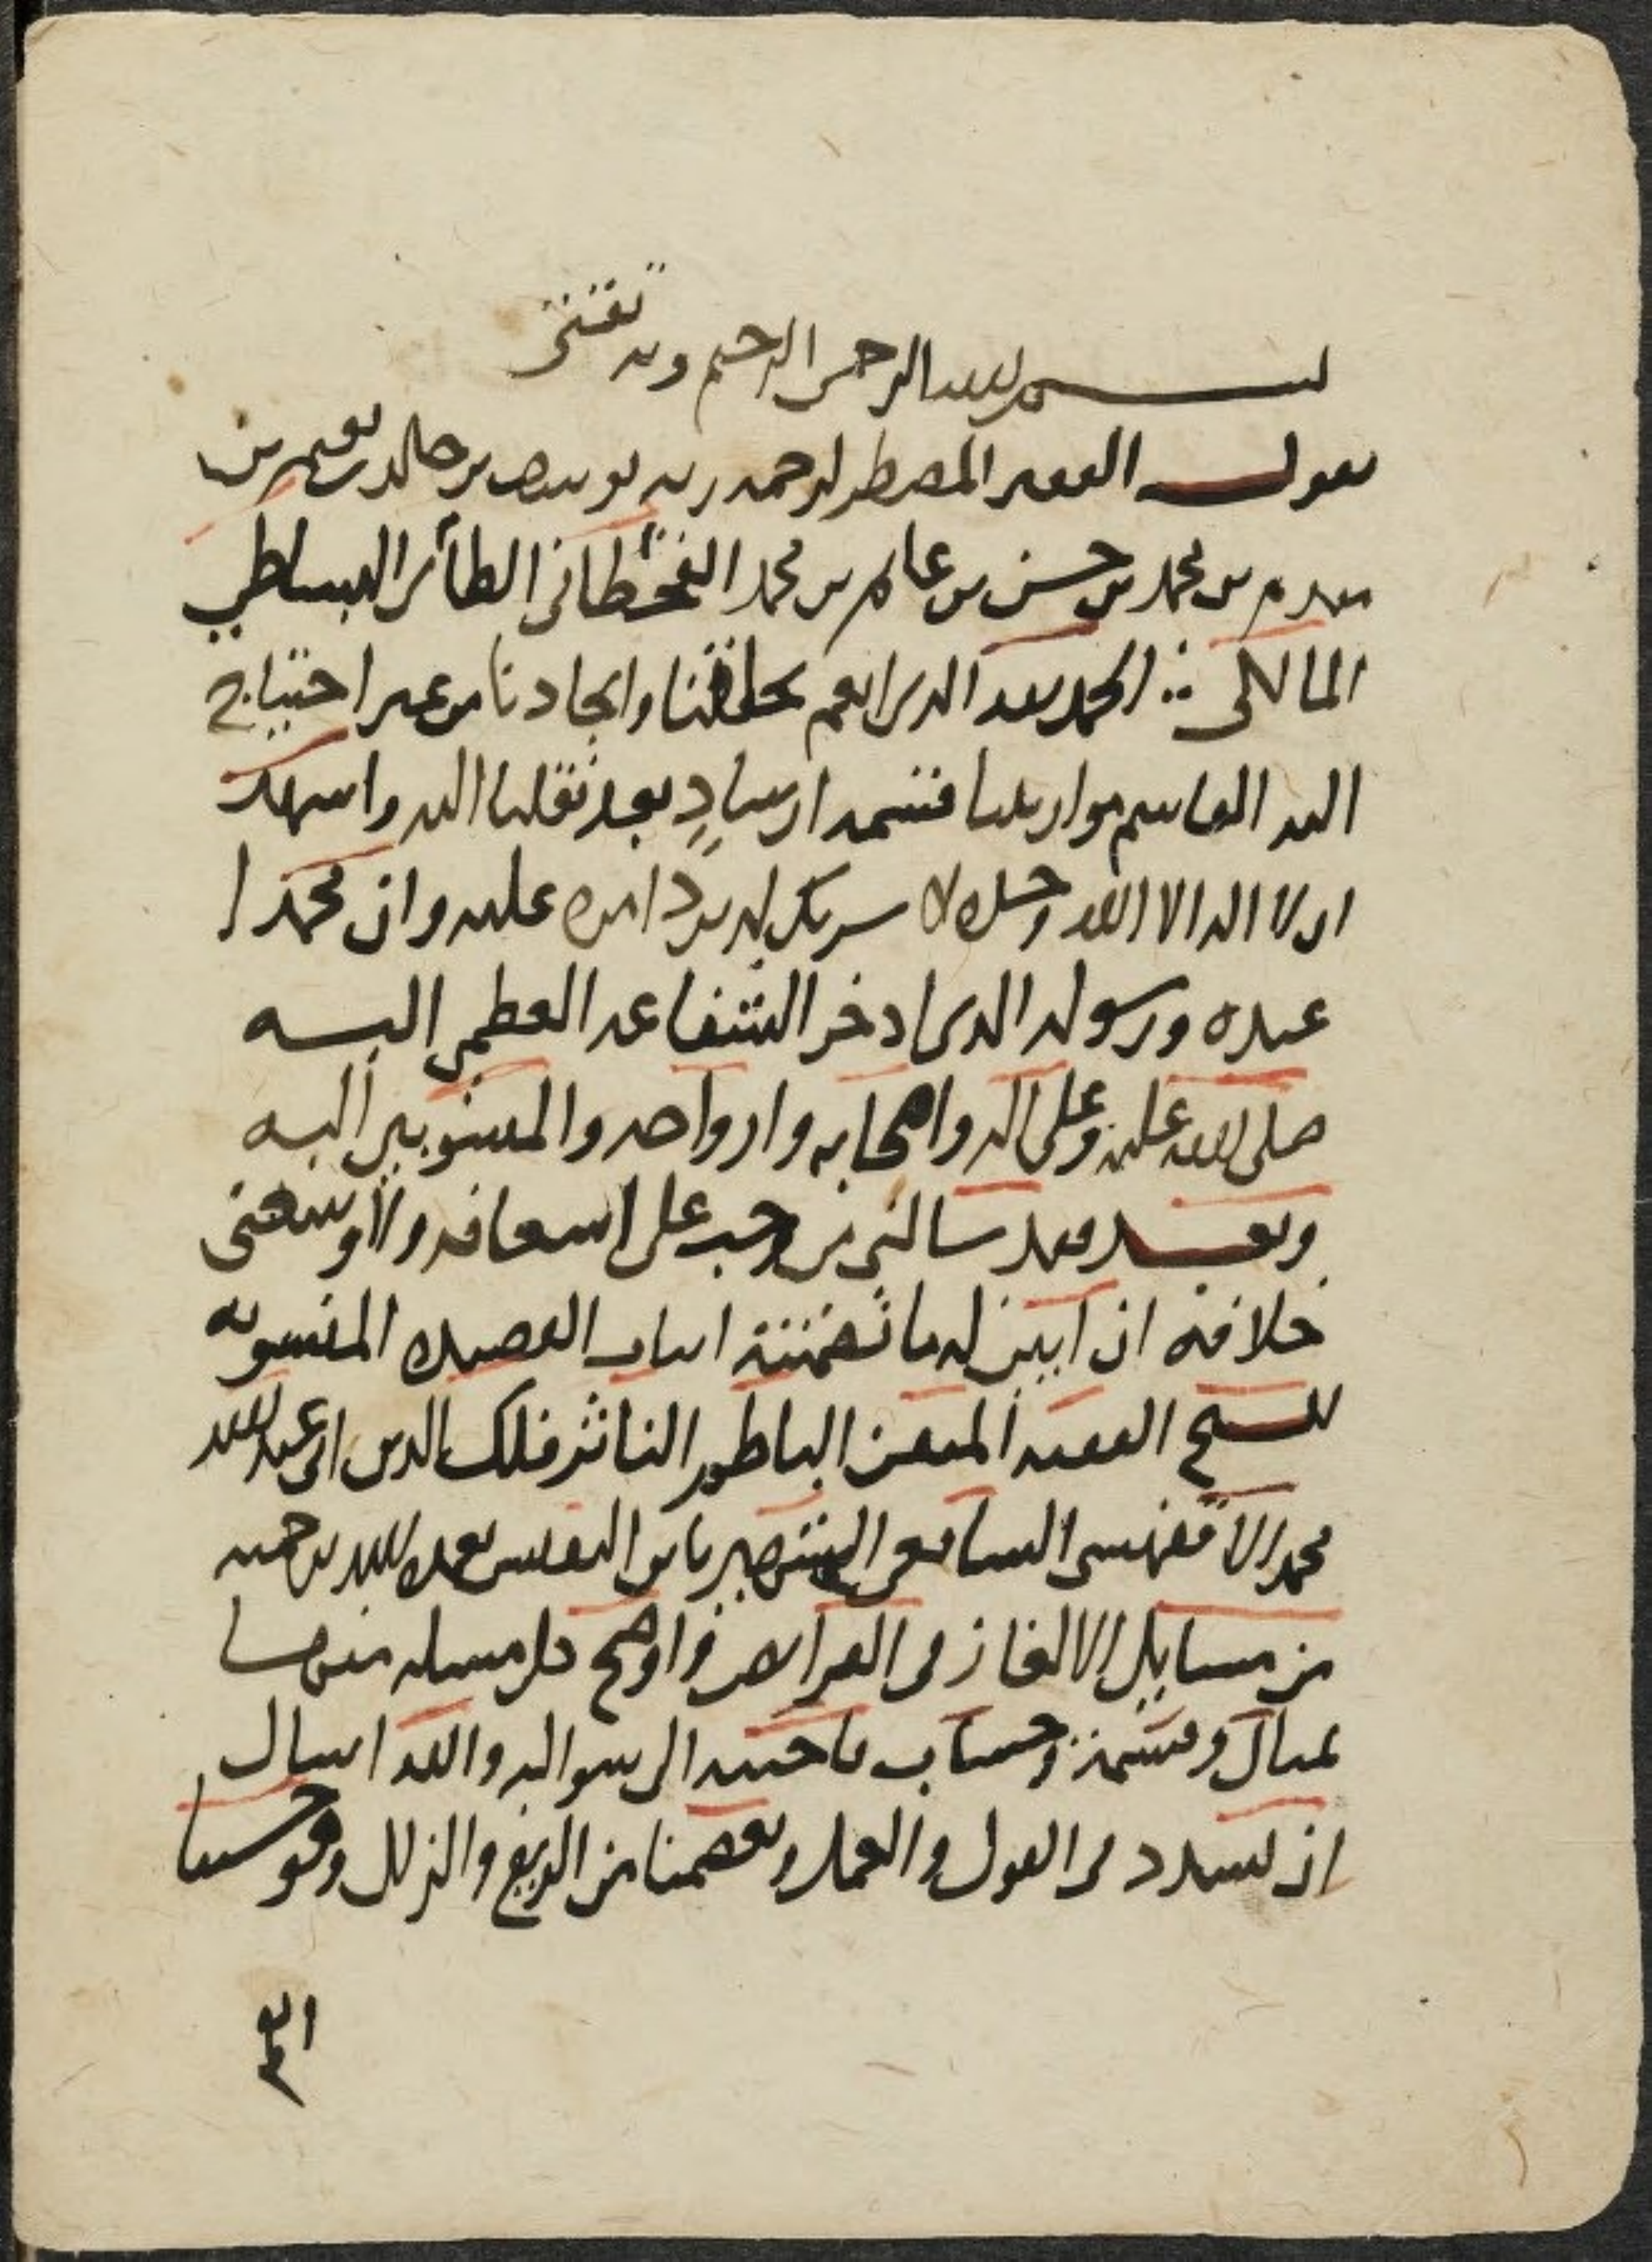 بسم الله الرحمن الرحيم وبه ثقتي
يقول الفقير المضطر لرحمة ربه يوسف بن خالد بن نعيم بن
مقدم بن محمد بن حسن بن محمد القحطاني الطائي البساطي
المالكي الحمد لله الذي انعم بخلقتنا وايجادنا من غير احتياج
اليه القاسم مواريثنا قسمة ارشاد بعد نقلنا اليه واشهد
ان لا اله الا الله وحده لا شريك له امره عليه وان محمدا
عبده ورسوله الذي ادخر الشفاعة العظمى اليه
صلى الله عليه وعلى اله واصحابه وازواجه والمنسوبين اليه
وبعد فقد سالني من وجب علي اسعافه ولا وسعني
خلافه ان ابين له ما تضمنته ابيات القصيدة المنسوبة
للشيخ الفقيه المتقن الناظم الناثر فلك الدين ابي عبد الله
محمد الاقفهسي الشافعي الشهير بابن تغمده الله برحمته
من مسايل الالغاز في الفرايض واوضح كل مسله منها
بمثال وقسمة وحساب فاجبته الى سواله والله اسال
ان يسدد في القول والعمل ويعصمنا من الزيغ والزلل وهو حسبنا